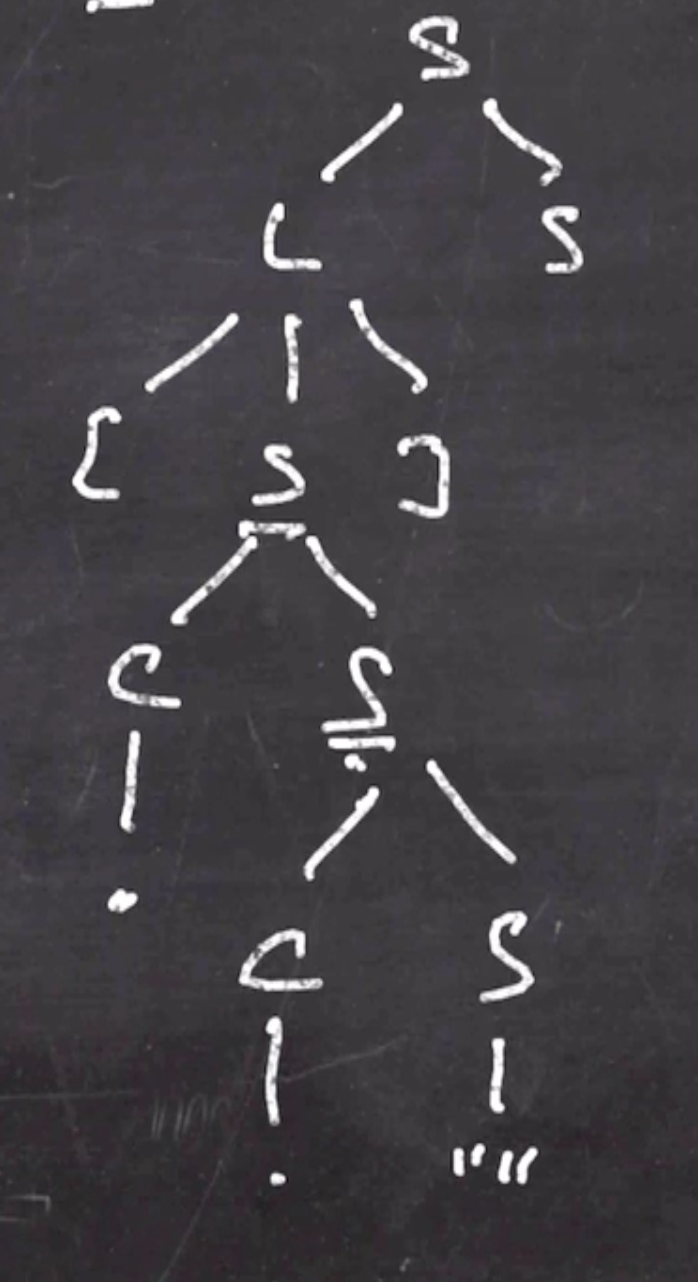 S
L S
[ S ]
C S
. C S
. ""